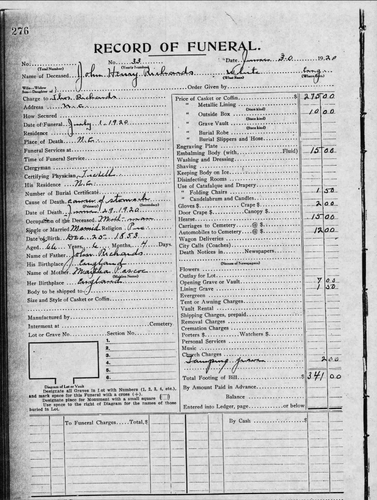 276
RECORD OF FUNERAL.
No. 33 Date June 30 1920
(Total Number) (Yearly Number)
Name of Deceased John Henry Richards White Eng.
Charge to Thos. Richards Order Given by
Address N.C.
How Secured
Date of Funeral July 1-1920
Residence
Place of Death N.C.
Funeral Services at
Time of Funeral Service
Clergyman
Certifying Physician Tickell
His Residence N.C.
Number of Burial Certificate
Cause of Death cancer of stomach
Date of Death June 29-1920
Occupation of the Deceased Mill-man
Single or Married Married Religion Pro
Date of Birth Dec. 25-1853
Aged 66 Years, 6 Months, 4 Days
Name of Father John Richards
His Birthplace England
Name of Mother Martha Pascoe
Her Birthplace England
Body to be shipped to
Size and Style of Casket or Coffin
Manufactured by
Interment at Cemetery
Lot or Grave No. Section No.
1.
2.
3.
4.
5.
6.
Diagram of Lot or Vault
Designate all Graves in Lot with Numbers (1, 2, 3, 4, etc.),
and mark space for this Funeral with a cross (+).
Designate place for Monument with a small square
Use space to the right of Diagram for the names of those
buried in Lot.
Price of Casket or Coffin $ 275 00
" Metallic Lining
" Outside Box 10 00
" Grave Vault
" Burial Robe
" Burial Slippers and Hose
Engraving Plate
Embalming Body (with Fluid) 15 00
Washing and Dressing
Shaving
Keeping Body on Ice
Disinfecting Rooms
Use of Catafalque and Drapery
" Folding Chairs 1 50
" Candelabrum and Candles
Gloves $ 2 00
Door Crape $ Canopy $
Hearse 15 00
Carriages to Cemetery @ $
Automobiles to Cemetery @ $ 12 00
Wagon Deliveries
City Calls (Coaches)
Death Notices in Newspapers
Flowers
Outlay for Lot
Opening Grave or Vault 7 00
Lining Grave 1 50
Evergreen
Tent or Awning Charges
Vault Rental
Shipping Charges, prepaid
Removal Charges
Cremation Charges
Porters $ Watchers $
Personal Services
Music
Church Charges
2 00
Total Footing of Bill $ 341 00
By Amount Paid in Advance
Balance
Entered into Ledger, page or below
To Funeral Charges Total $
By Cash $